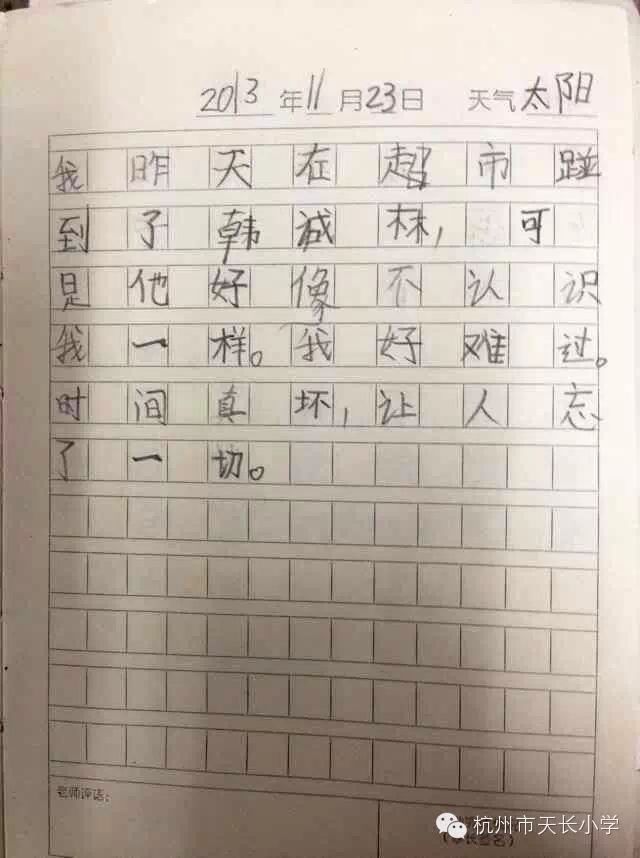 2013年11月23日 天气太阳
我昨天在超市踫
到了韩诚林,可
是他好像不认识
我一样。我好难过。
时间真坏,让人忘
了一切。
老师评语:
(家长签名)
杭州市天长小学